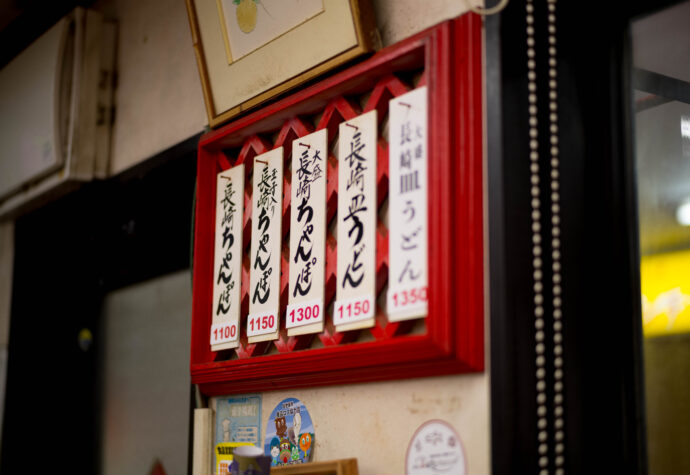 大盛
長崎皿うどん
1350
長崎皿うどん
1150
大盛
長崎ちゃんぽん
1300
玉子入り
長崎ちゃんぽん
1150
長崎ちゃんぽん
1100